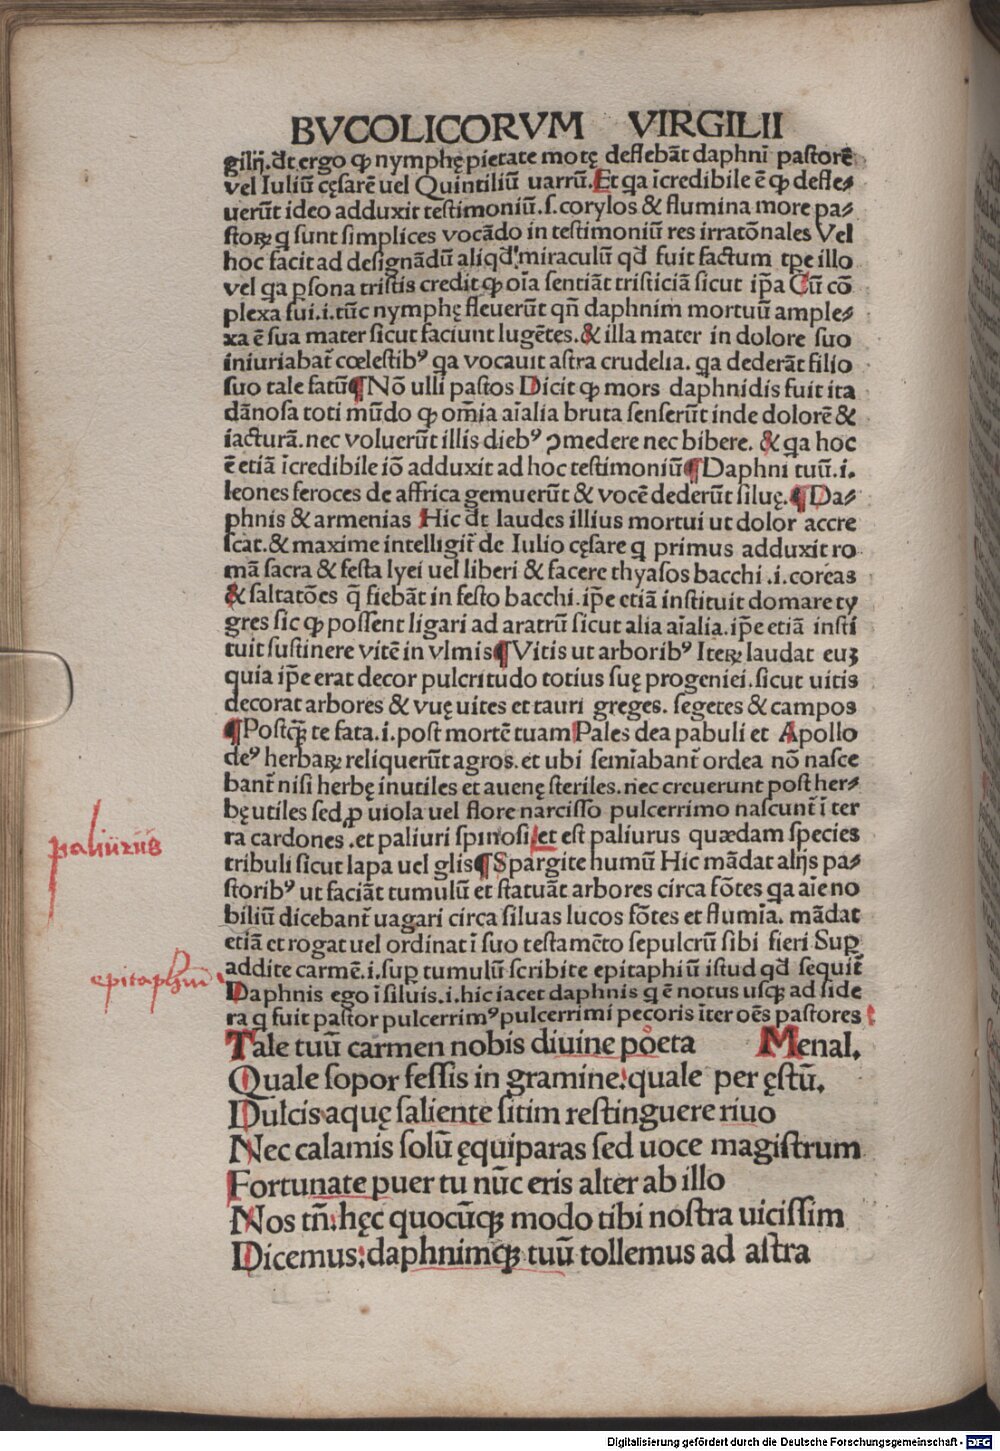 BVCOLICORVM VIRGILII
gilij. đt ergo ꝙ nymphę pietate motę deflebāt daphnī pastorē
vel Iuliū cęsarē uel Quintiliū uarrū. Et qa īcredibile ē ꝙ defle⸗
uerūt ideo adduxit testimoniū. s. corylos & flumina more pa⸗
stoꝝ q sunt simplices vocādo in testimoniū res irratōnales Vel
hoc facit ad designādū aliqđ miraculū qđ fuit factum tꝑe illo
vel qa ꝑsona tristis credit ꝙ oīa sentiāt tristiciā sicut ip̄a Cū cō
plexa sui. i. tūc nymphę fleuerūt qn̄ daphnim mortuū ample⸗
xa ē sua mater sicut faciunt lugētes. & illa mater in dolore suo
iniuriabat᷑ cœlestibꝰ qa vocauit astra crudelia. qa dederāt filio
suo tale fatū ¶ Nō ulli pastos Dicit ꝙ mors daphnidis fuit ita
dānosa toti mūdo ꝙ om̄ia aīalia bruta senserūt inde dolorē &
iacturā. nec voluerūt illis diebꝰ ꝯmedere nec bibere. & qa hoc
ē etiā īcredibile iō adduxit ad hoc testimoniū ¶ Daphni tuū. i.
leones feroces de affrica gemuerūt & vocē dederūt siluę. ¶ Da⸗
phnis & armenias Hic đt laudes illius mortui ut dolor accre
scat. & maxime intelligit᷑ de Iulio cęsare q primus adduxit ro
mā sacra & festa lyei uel liberi & facere thyasos bacchi .i. coreas
& saltatōes q̄ fiebāt in festo bacchi. ip̄e etiā instituit domare ty
gres sic ꝙ possent ligari ad aratrū sicut alia aīalia. ip̄e etiā insti
tuit sustinere vitē in vlmis ¶ Vitis ut arboribꝰ Iteꝝ laudat euꝫ
quia ip̄e erat decor pulcritudo totius suę progeniei. sicut uitis
decorat arbores & vuę uites et tauri greges. segetes & campos
¶ Postqꝫ te fata. i. post mortē tuam Pales dea pabuli et Apollo
deꝰ herbaꝝ reliquerūt agros. et ubi semīabant᷑ ordea nō nasce
bant᷑ nisi herbę inutiles et auenę steriles. nec creuerunt post her⸗
bę utiles sed ꝓ uiola uel flore narcisso pulcerrimo nascunt᷑ ī ter
ra cardones .et paliuri spinosi et est paliurus quædam species
tribuli sicut lapa uel glis ¶ Spargite humū Hic mādat alijs pa⸗
storibꝰ ut faciāt tumulū et statuāt arbores circa fōtes qa aīe no
biliū dicebant᷑ uagari circa siluas lucos fōtes et flumīa. mādat
etiā et rogat uel ordinat ī suo testamēto sepulcrū sibi fieri Suꝑ
addite carmē. i. suꝑ tumulū scribite epitaphiū istud qđ sequit᷑
Daphnis ego ī siluis. i. hic iacet daphnis q ē notus usqꝫ ad side
ra q fuit pastor pulcerrimꝰ pulcerrimi pecoris īter oēs pastores
Tale tuū carmen nobis diuine poeta Menal.
Quale sopor fessis in gramine: quale per ęstū.
Dulcis aquę saliente sitim restinguere riuo
Nec calamis solū ęquiparas sed uoce magistrum
Fortunate puer tu nūc eris alter ab illo
Nos tn̄: hęc quocūqꝫ modo tibi nostra uicissim
Dicemus: daphnimqꝫ tuū tollemus ad astra
paliurus
epitaphiū
Digitalisierung gefördert durch die Deutsche Forschungsgemeinschaft - DFG